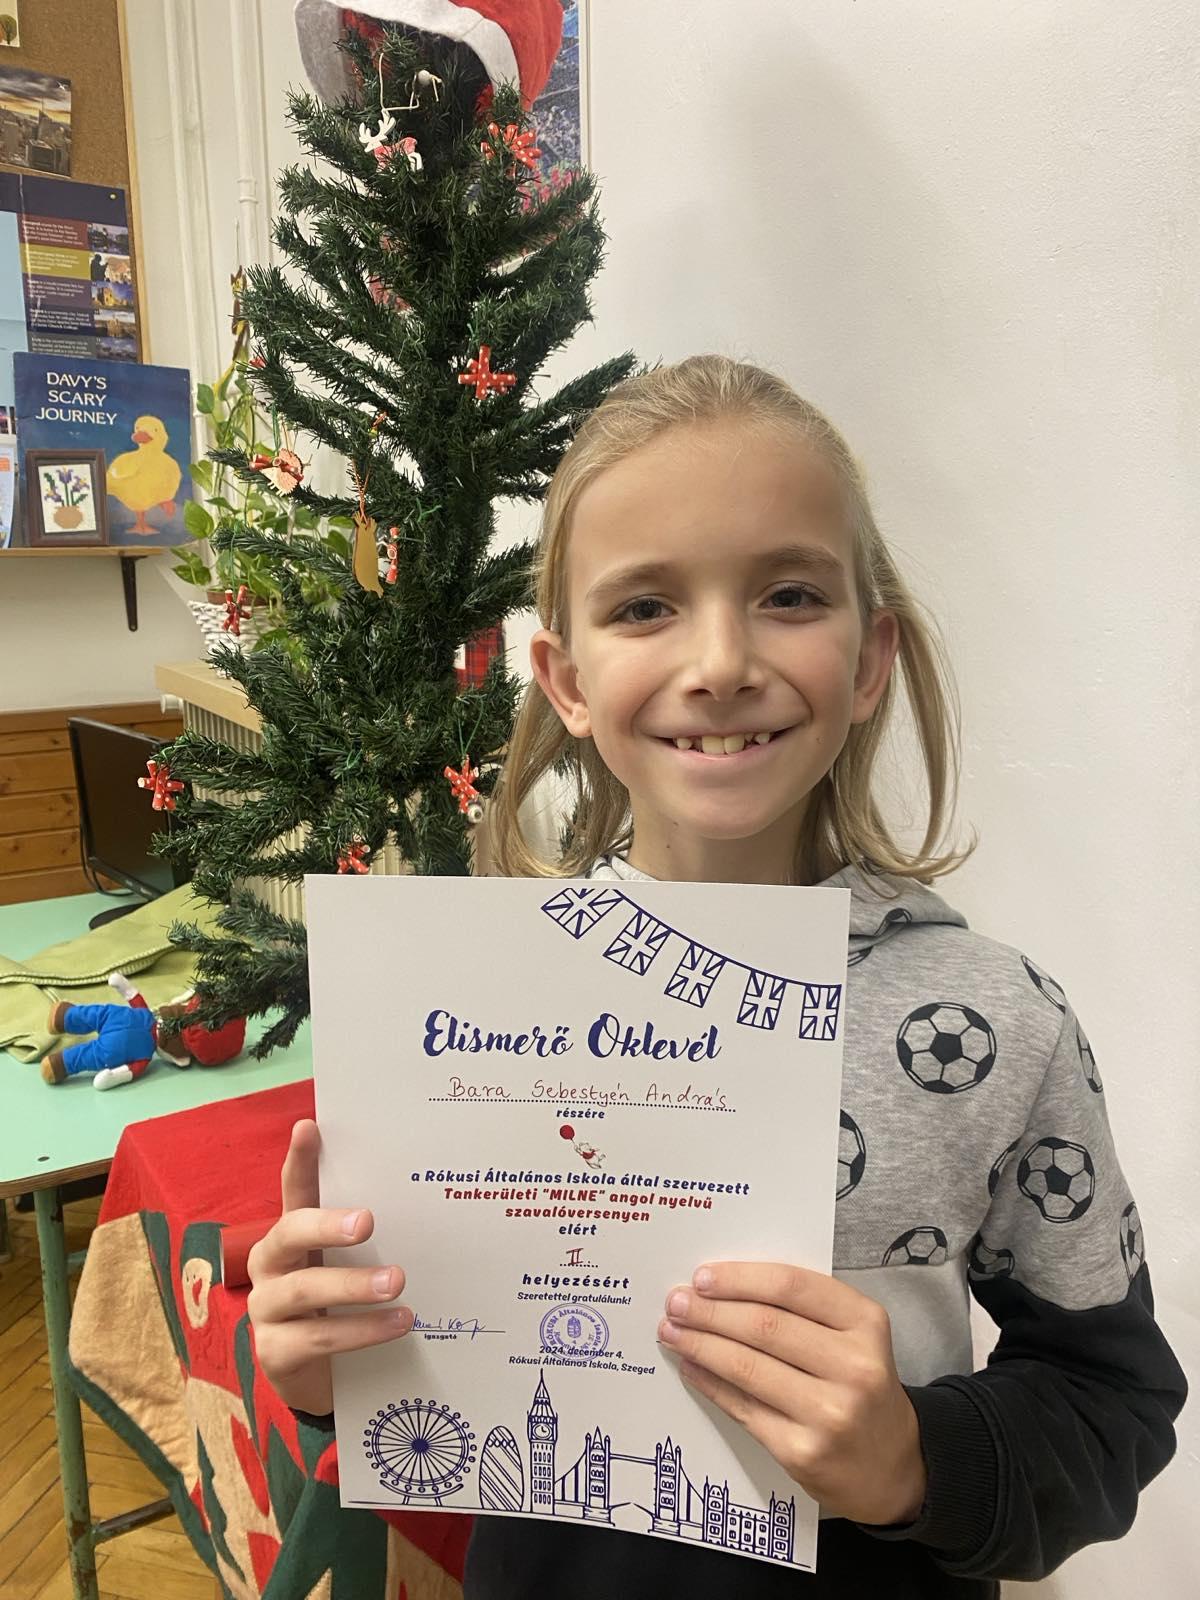 DAVY'S
SCARY
JOURNEY
Elismerő Oklevél
Bara Sebestyén András
részére
a Rókusi Általános Iskola által szervezett
Tankerületi "MILNE" angol nyelvű
szavalóversenyen
elért
II.
helyezésért
Szeretettel gratulálunk!
igazgató
RÓKUSI Általános Iskola
2024. december 4.
Rókusi Általános Iskola, Szeged